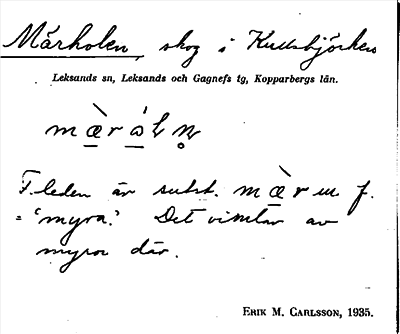 Mårholen, skog i Kullsbjörken
Leksands sn, Leksands och Gagnefs tg, Kopparbergs län.
m æ̠̀r ó̠ł n̥
F.leden är subst. m æ̠̀r m f.
= 'myra'. Det vimlar av
myror där.
ERIK M. CARLSSON, 1935.